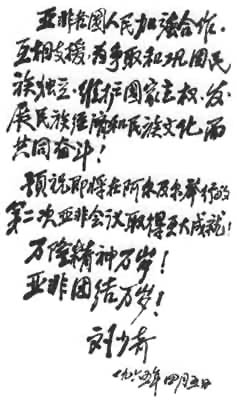 亚非各国人民加强合作，
互相支援，为争取和巩固民
族独立，维护国家主权，发
展民族经济和民族文化而
共同奋斗！
预祝即将在阿尔及尔举行的
第二次亚非会议取得更大成就！
万隆精神万岁！
亚非团结万岁！
刘少奇
一九六五年四月五日